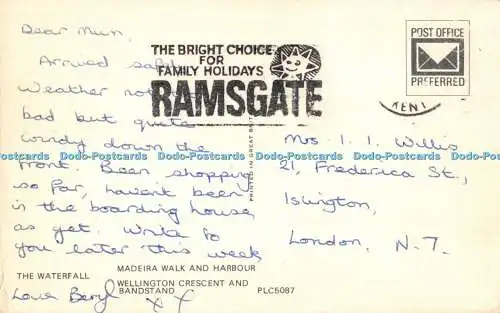 Dear Mum,
Arrived safely
Weather not
bad but quite
windy down the
front. Been shopping
so far, havent been
in the boarding house
as yet. Write to
you later this week
Love Beryl
X X
THE BRIGHT CHOICE
FOR
FAMILY HOLIDAYS
RAMSGATE
POST OFFICE
PREFERRED
KENT
PRINTED IN GREAT BRIT
Mrs I. I. Willis
21, Frederica St.,
Islington,
London, N.7.
THE WATERFALL
MADEIRA WALK AND HARBOUR
WELLINGTON CRESCENT AND
BANDSTAND
PLC5087
Dodo-Postcards Dodo-Postcards Dodo-Postcards Dodo-Postcards Dodo-Postcards Dodo-Postcards